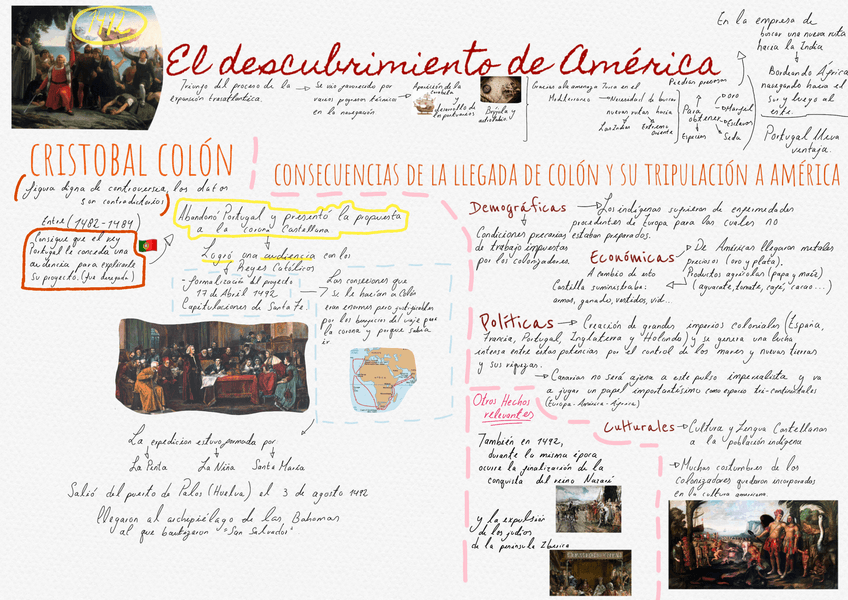 1492
El descubrimiento de América
Triunfo del proceso de la
expansión trasatlántica.
Se vio favorecido por
varios progresos técnicos
en la navegación
Aparición de la
carabela
y
desarrollo de
los portulanos
Brújula y
astrolabio.
Gracias a la amenaza Turca en el
Mediterráneo
Necesidad de buscar
nuevas rutas hacia
Las Indias
Extremo
oriente
Para
obtener
Piedras preciosas
Oro
Marfil
Esclavos
Seda
Especias
En la empresa de
buscar una nueva ruta
hacia la India
Bordeando África
navegando hacia el
Sur y luego al
este.
Portugal lleva
ventaja.
CRISTOBAL COLÓN
figura digna de controversia, los datos
son contradictorios
Entre 1482-1484
Consigue que el rey
Portugal le conceda una
audiencia para explicarle
su proyecto. (fue denegado)
Abandonó Portugal y presentó la propuesta
a la corona Castellana
Logró una audiencia con los
Reyes Católicos
formalización del proyecto
17 de Abril 1492
Capitulaciones de Santa Fe.
Las concesiones que
se le hacían a Colón
eran enormes pero justificables
por los beneficios del viaje para
la corona y porque sabía
ir
La expedición estuvo formada por
La Pinta
La Niña
Santa María
Salió del puerto de Palos (Huelva) el 3 de agosto 1492
llegaron al archipiélago de las Bahamas
al que bautizaron "San Salvador"
CONSECUENCIAS DE LA LLEGADA DE COLÓN Y SU TRIPULACIÓN A AMÉRICA
Demográficas
Los indígenas sufrieron de enfermedades
procedentes de Europa para las cuales no
estaban preparados.
Condiciones precarias
de trabajo impuestas
por los colonizadores.
Económicas
De Américas llegaron metales
preciosos (oro y plata).
Productos agrícolas (papa y maíz)
(aguacate, tomate, caja, cacao...)
A cambio de esto
Castilla suministraba:
armas, ganado, vestidos, vid...
Políticas
Creación de grandes imperios coloniales (España,
Francia, Portugal, Inglaterra y Holanda) y se genera una lucha
intensa entre estas potencias por el control de los mares y nuevas tierras
y sus riquezas.
Canarias no será ajena a este pulso imperealista y va
a jugar un papel importantísimo como espacio tri-continentales
(Europa-América-África)
Otros Hechos
relevantes
También en 1492,
durante la misma época
ocurre la finalización de la
conquista del reino Nazarí
y la expulsión
de los judíos
de la península Ibérica
Culturales
Cultura y Lengua Castellanas
a la población indígena
Muchas costumbres de los
colonizadores quedaron incorporados
en la cultura americana.